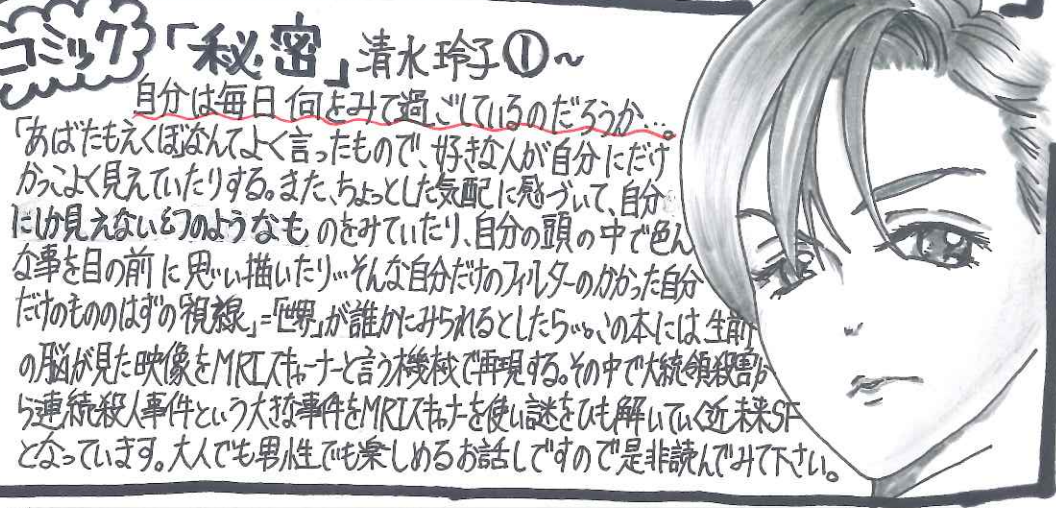 コミック「秘密」清水玲子①~
自分は毎日何をみて過ごしているのだろうか…。
「あばたもえくぼ」なんてよく言ったもので、好きな人が自分にだけ
かっこよく見えていたりする。また、ちょっとした気配に感づいて、自分
にしか見えない幻のようなものをみていたり、自分の頭の中で色ん
な事を目の前に思い描いたり…そんな自分だけのフィルターのかかった自分
だけのもののはずの「視線」=「世界」が誰かにみられるとしたら…。この本には生前
の脳が見た映像をMRIスキャナーと言う機械で再現する。その中で大統領殺害か
ら連続殺人事件という大きな事件をMRIスキャナーを使い謎をひも解いていく近未来SF
となっています。大人でも男性でも楽しめるお話しですので是非読んでみて下さい。